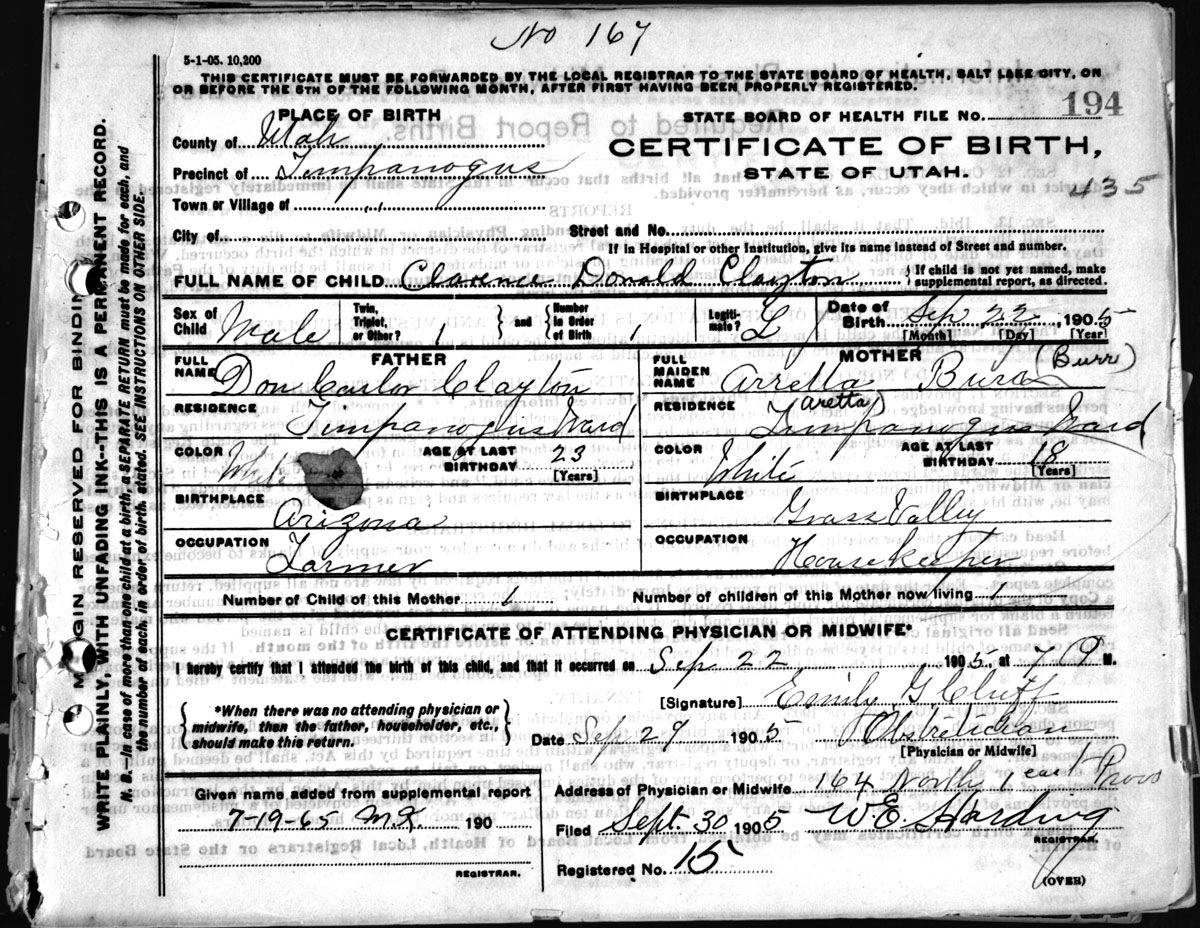 No 167
5-1-05. 10,200
THIS CERTIFICATE MUST BE FORWARDED BY THE LOCAL REGISTRAR TO THE STATE BOARD OF HEALTH, SALT LAKE CITY, ON
OR BEFORE THE 5TH OF THE FOLLOWING MONTH, AFTER FIRST HAVING BEEN PROPERLY REGISTERED.
PLACE OF BIRTH
STATE BOARD OF HEALTH FILE No. 194
County of Utah
CERTIFICATE OF BIRTH,
Precinct of Timpanogus
STATE OF UTAH.
435
Town or Village of "
City of Street and No.
If in Hospital or other Institution, give its name instead of Street and number.
FULL NAME OF CHILD Clarence Donald Clayton { If child is not yet named, make supplemental report, as directed.
Sex of Child Male Twin, Triplet, or Other? 1 } and { Number in Order of Birth 1 Legitimate? L Date of Birth Sep 22 1905
[Month] [Day] [Year]
FATHER MOTHER
FULL NAME Don Carlos Clayton FULL MAIDEN NAME Arretta Bura (Burr)
(Aretta)
RESIDENCE Timpanogus Ward RESIDENCE Timpanogus Ward
COLOR White AGE AT LAST BIRTHDAY 23 [Years] COLOR White AGE AT LAST BIRTHDAY 18 [Years]
BIRTHPLACE Arizona BIRTHPLACE Grass Valley
OCCUPATION Farmer OCCUPATION Housekeeper
Number of Child of this Mother 1 Number of children of this Mother now living 1
CERTIFICATE OF ATTENDING PHYSICIAN OR MIDWIFE*
I hereby certify that I attended the birth of this child, and that it occurred on Sep 22, 1905, at 7 M.
{ *When there was no attending physician or midwife, then the father, householder, etc., should make this return. }
[Signature] Emily G Cluff
Date Sep 29 1905 Obstetrician
[Physician or Midwife]
Given name added from supplemental report
7-19-65 190
REGISTRAR.
Address of Physician or Midwife 164 North 1 east Provo
Filed Sept. 30 1905 W E Harding
REGISTRAR.
Registered No. 15
(OVER)
MARGIN RESERVED FOR BINDING
WRITE PLAINLY, WITH UNFADING INK--THIS IS A PERMANENT RECORD.
N. B.--In case of more than one child at a birth, a SEPARATE RETURN must be made for each, and
the number of each, in order of birth, stated. SEE INSTRUCTIONS ON OTHER SIDE.